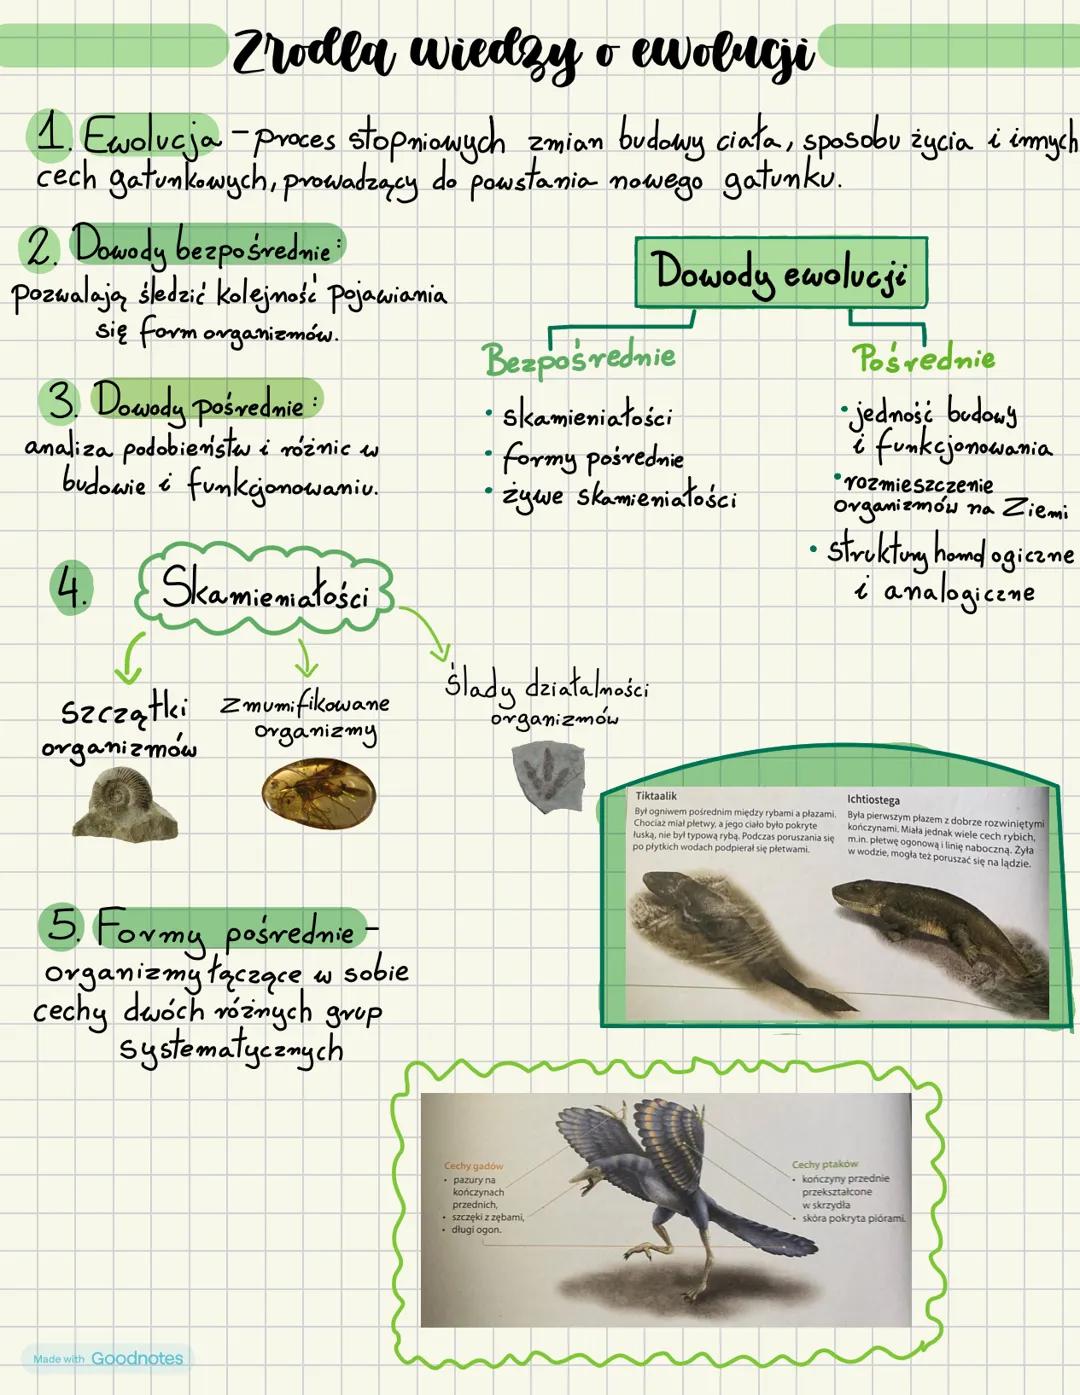 Zrodla wiedzy o ewolucji
1. Ewolucja - proces stopniowych zmian budowy ciała, sposobu życia i innych
cech gatunkowych, prowadzący do powstania nowego gatunku.
2. Dowody bezpośrednie:
pozwalają śledzić kolejność pojawiania
się form organizmów.
3. Dowody pośrednie:
analiza podobieństw i różnic w
budowie i funkcjonowaniu.
Dowody ewolucji
Bezpośrednie
• skamieniałości
• formy pośrednie
• żywe skamieniałości
Pośrednie
• jedność budowy
i funkcjonowania
• rozmieszczenie
organizmów na Ziemi
• struktury homologiczne
i analogiczne
4. Skamieniałości
szczątki
organizmów
zmumifikowane
organizmy
ślady działalności
organizmów
Tiktaalik
Był ogniwem pośrednim między rybami a płazami.
Chociaż miał płetwy, a jego ciało było pokryte
łuską, nie był typową rybą. Podczas poruszania się
po płytkich wodach podpierał się płetwami.
Ichtiostega
Była pierwszym płazem z dobrze rozwiniętymi
kończynami. Miała jednak wiele cech rybich,
m.in. płetwę ogonową i linię naboczną. Żyła
w wodzie, mogła też poruszać się na lądzie.
5. Formy pośrednie -
organizmy łączące w sobie
cechy dwóch różnych grup
systematycznych
Cechy gadów
• pazury na
kończynach
przednich,
• szczęki z zębami,
• długi ogon.
Cechy ptaków
• kończyny przednie
przekształcone
w skrzydła
• skóra pokryta piórami.
Made with Goodnotes